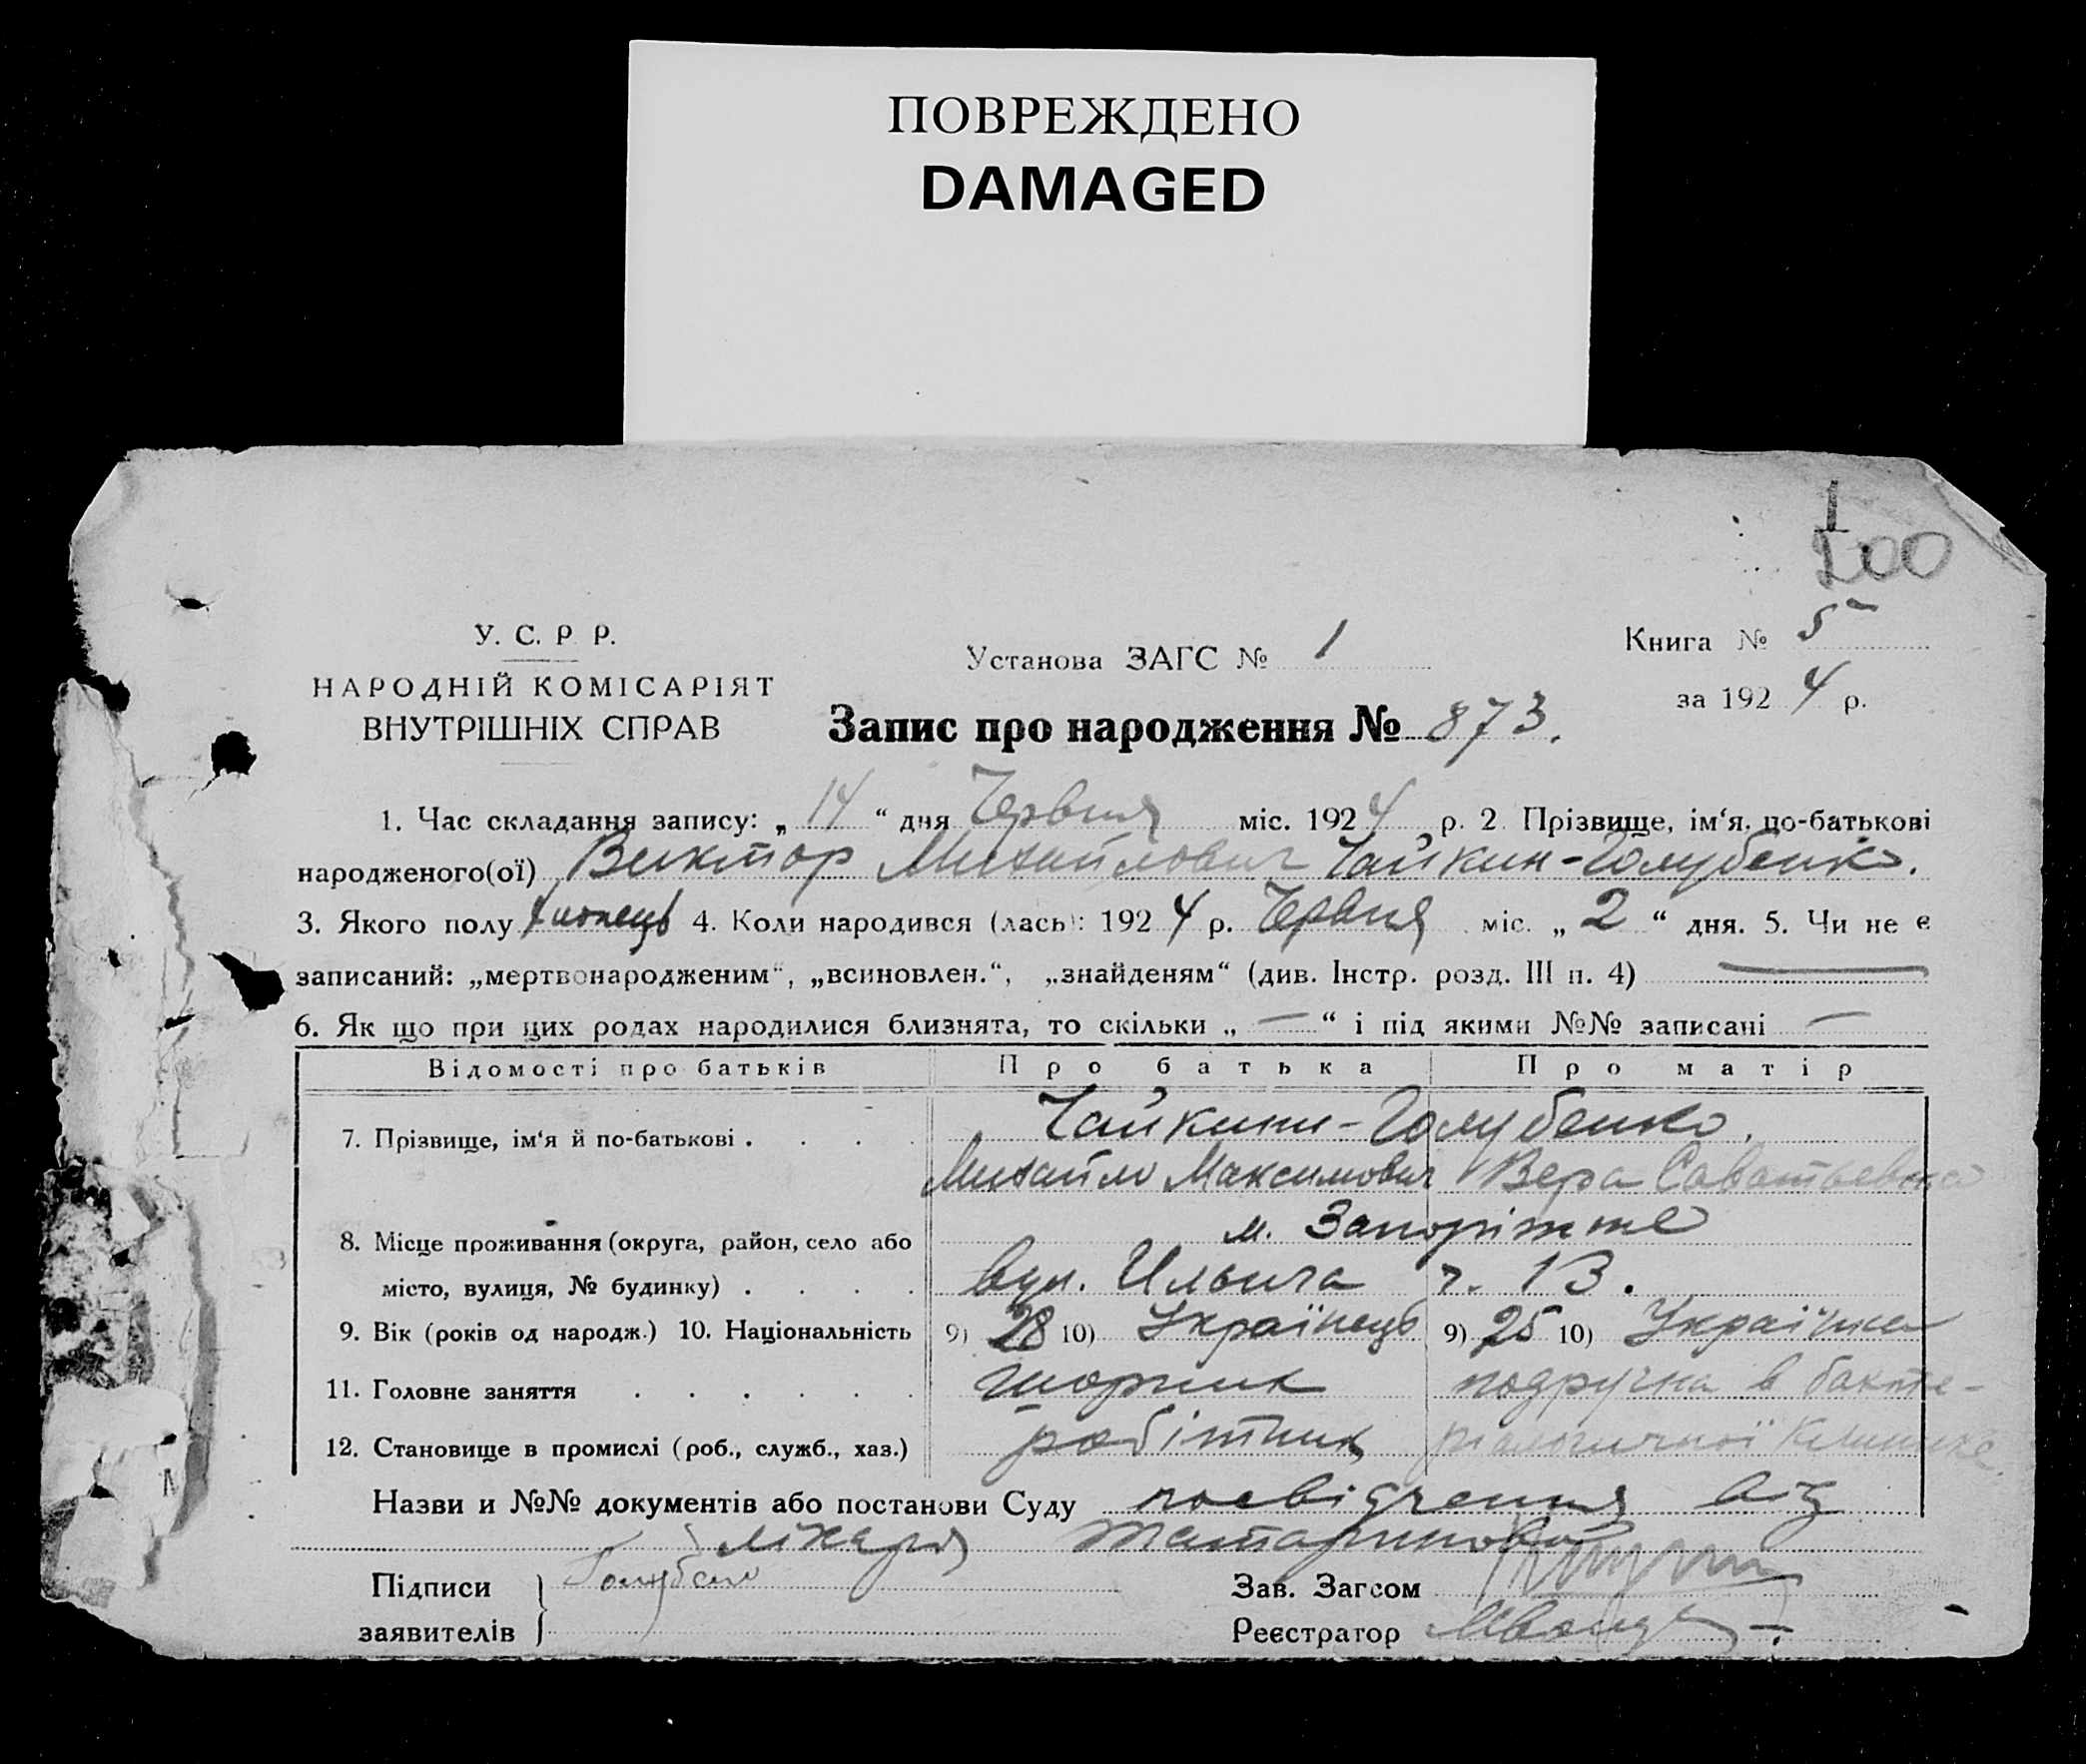 ПОВРЕЖДЕНО
DAMAGED
1
200
У. С. Р. Р.
НАРОДНІЙ КОМІСАРІЯТ
ВНУТРІШНІХ СПРАВ
Установа ЗАГС № 1
Книга № 5
за 1924 р.
Запис про народження № 873.
1. Час складання запису: „14“ дня Червня міс. 1924 р. 2. Прізвище, ім‘я, по-батькові
народженого(ої) Виктор Михайлович Чайкин-Голубенко.
3. Якого полу хлопець 4. Коли народився (лась): 1924 р. Червня міс. „2“ дня. 5. Чи не є
записаний: „мертвонародженим“, „всиновлен.“, „знайденям“ (див. Інстр. розд. III п. 4) —
6. Як що при цих родах народилися близнята, то скільки „—“ і під якими №№ записані —
Відомості про батьків Про батька Про матір
7. Прізвище, ім‘я й по-батькові . . . . Чайкини-Голубенко.
Михайло Максимович Вера Саватьевна
8. Місце проживання (округа, район, село або м. Запоріжже
місто, вулиця, № будинку) . . . . вул. Ильича ч. 13.
9. Вік (років од народж.) 10. Національність 9) 28 10) Українець 9) 25 10) Українка
11. Головне заняття . . . . . . шорник подручна в бакте-
12. Становище в промислі (роб., служб., хаз.) робітник ріологичной клинике.
Назви и №№ документів або постанови Суду посвідчення від
лікаря Татаринова
Підписи Голубенко Зав. Загсом
заявителів Реєстратор